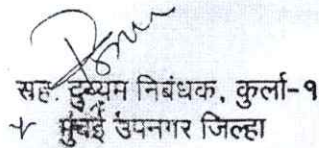 सह. दुय्यम निबंधक, कुर्ला-१
मुंबई उपनगर जिल्हा